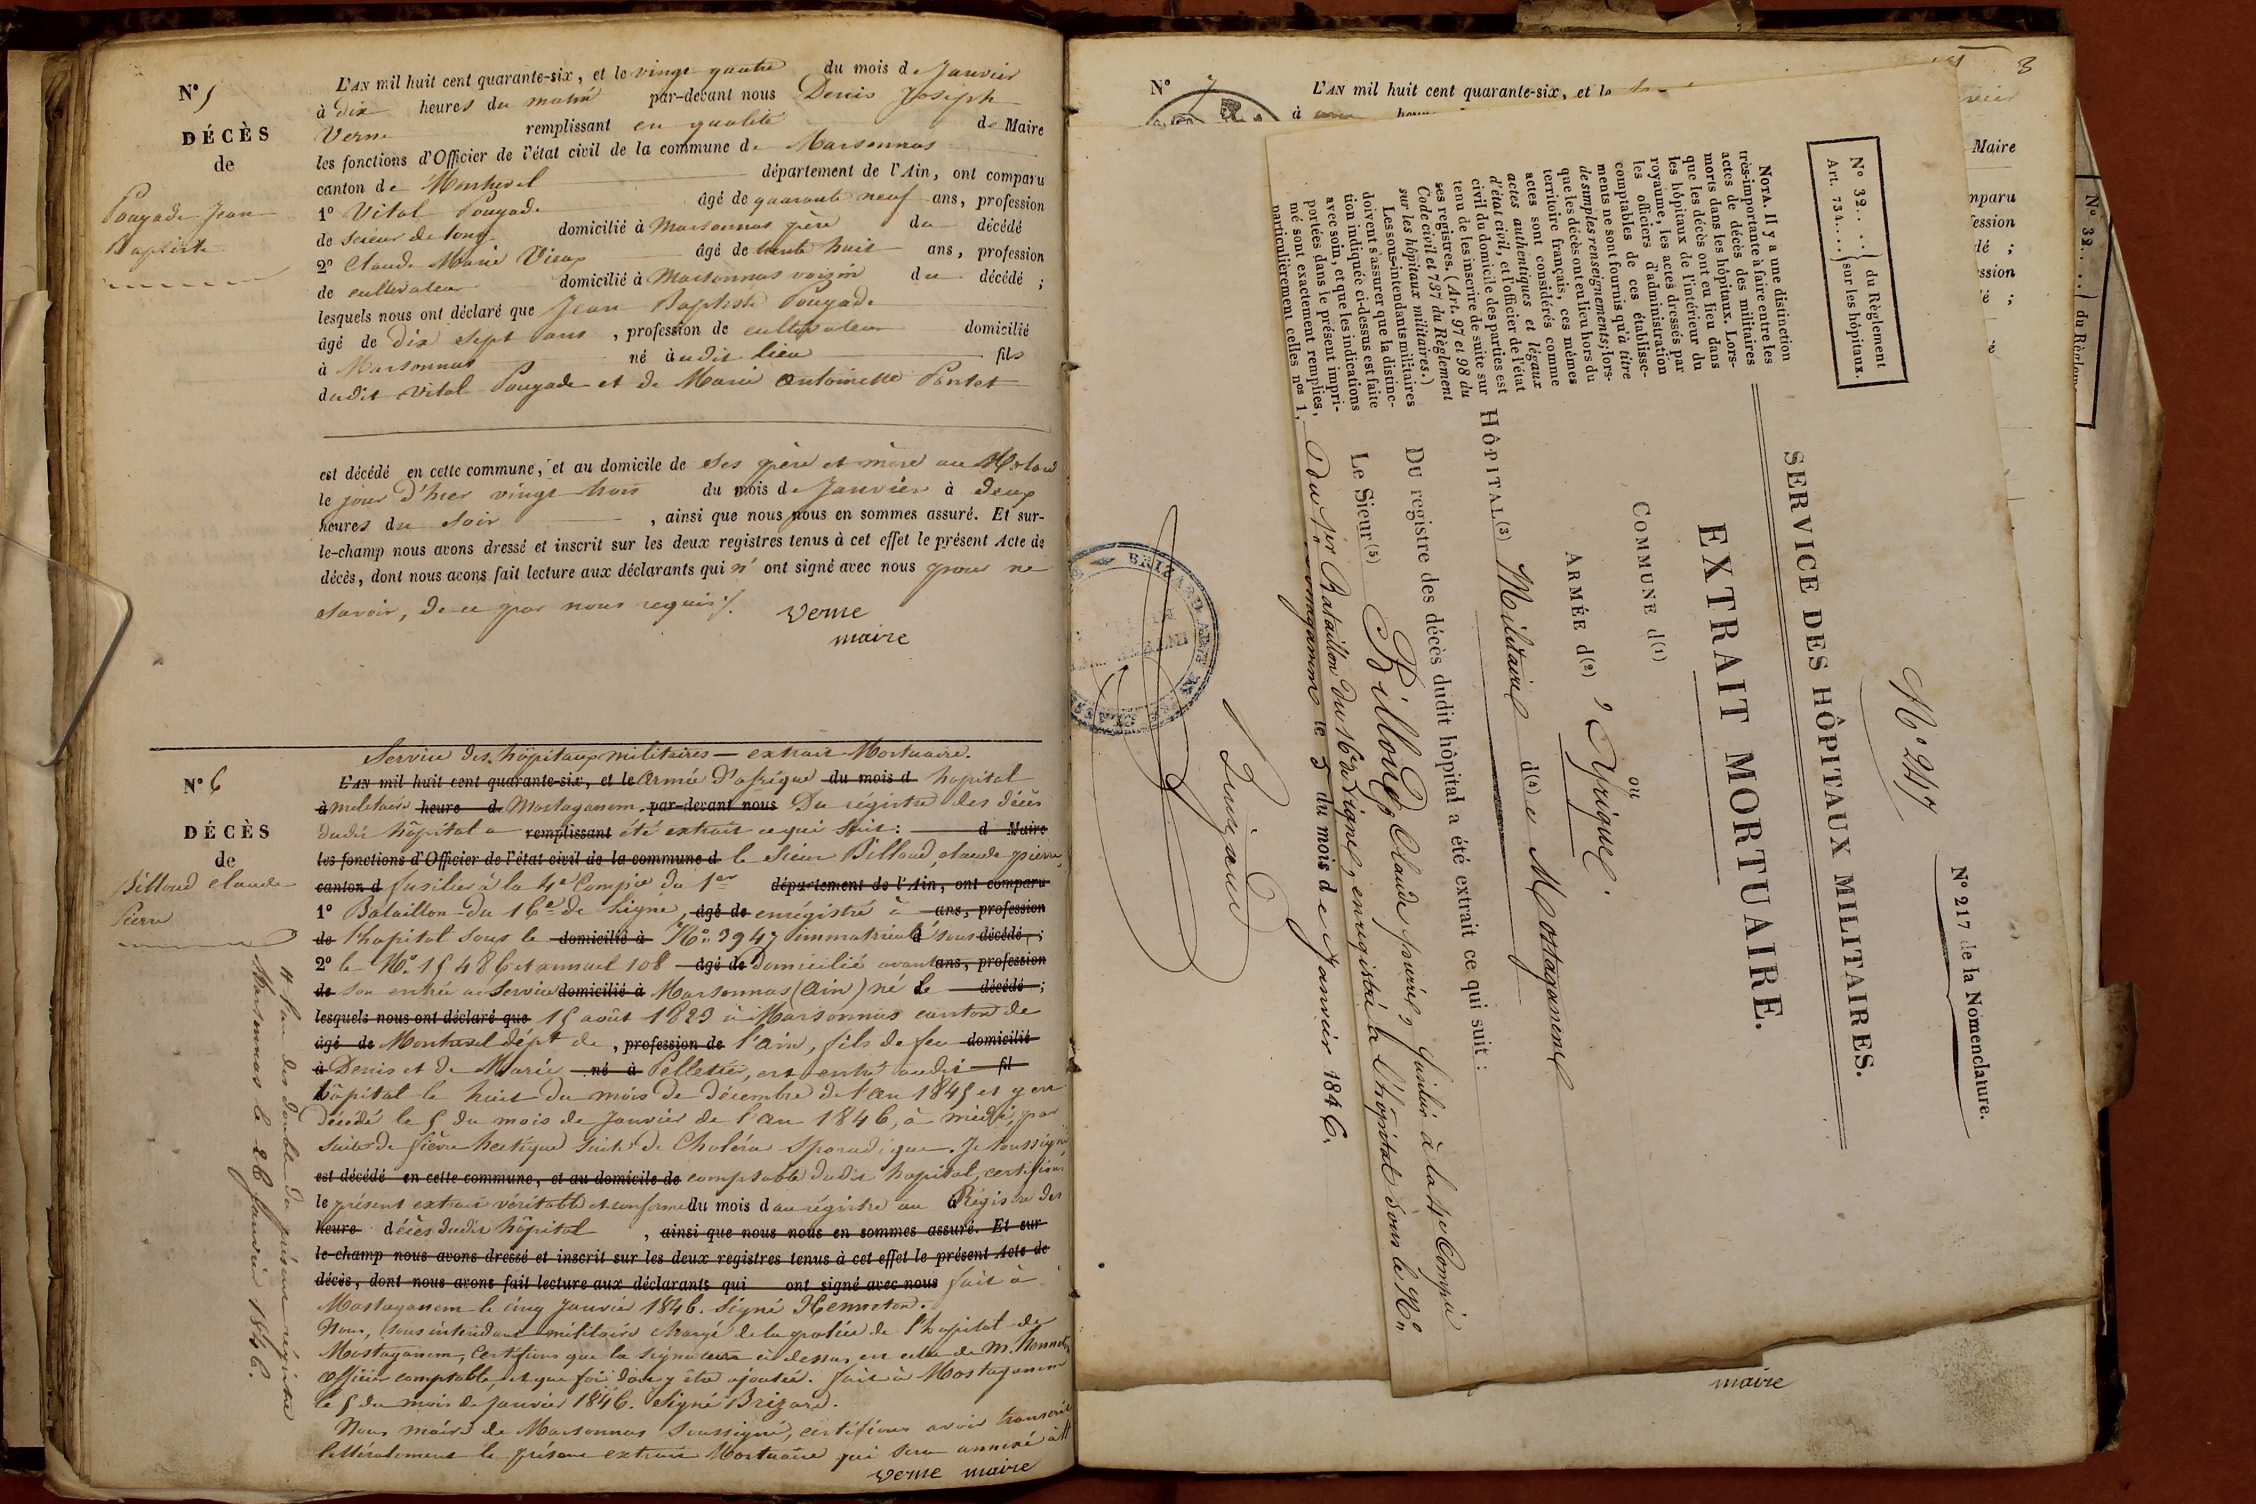 N° 5
DÉCÈS
de
Pougade Jean
Baptiste
L'AN mil huit cent quarante-six, et le vingt quatre du mois de Janvier
à dix heures du matin par-devant nous Denis Joseph
Verne remplissant en qualité de Maire
les fonctions d'Officier de l'état civil de la commune de Marsonnas
canton de Montrevel département de l'Ain, ont comparu
1° Vital Pougade âgé de quarante neuf ans, profession
de scieur de long domicilié à Marsonnas père du décédé
2° Claude Marie Vieux âgé de trente huit ans, profession
de cultivateur domicilié à Marsonnas voisin du décédé ;
lesquels nous ont déclaré que Jean Baptiste Pougade
âgé de dix sept ans, profession de cultivateur domicilié
à Marsonnas né àudit lieu fils
dudit Vital Pougade et de Marie Antoinette Pontet
est décédé en cette commune, et au domicile de ses père et mère au
le jour d'hier vingt trois du mois de Janvier à deux
heures du soir, ainsi que nous nous en sommes assuré. Et sur-
le-champ nous avons dressé et inscrit sur les deux registres tenus à cet effet le présent Acte de
décès, dont nous avons fait lecture aux déclarants qui n'ont signé avec nous pour ne
savoir, de ce par nous requis./.
Verne
maire
N° 6
DÉCÈS
de
Billoud Claude
Pierre
Service des hôpitaux militaires — extrait Mortuaire.
L'AN mil huit cent quarante-six, et le armée d'afrique du mois d hopital
à militaire heure d Mostaganem par-devant nous Du régistre des décès
dudit hôpital a remplissant été extrait ce qui suit : d Maire
les fonctions d'Officier de l'état civil de la commune d le Sieur Billoud, claude pierre,
canton d fusilier à la 4e Compie du 1er département de l'Ain, ont comparu
1° Bataillon du 16e de Ligne, âgé de enrégistré à ans, profession
de l'hopital sous le domicilié à N° 3947 immatriculé sous décédé, ;
2° le N° 15486 et annuel 108 âgé de Domicilié avant ans, profession
de son entrée au Service domicilié à Marsonnas (Ain) né le décédé ;
lesquels nous ont déclaré que 15 août 1823 à Marsonnas canton de
âgé de Montrevel dépt de, profession de l'ain, fils de feu domicilié
à Denis et de Marie né à Pelletier, est entré audit fil
hôpital le huit du mois de décembre de l'an 1845 et y est
décédé le 5 du mois de Janvier de l'an 1846, à midi, par
suite de fièvre hectique suite de Choléra Sporadique. Je soussigné
est décédé en cette commune, et au domicile de comptable dudit hopital, certifions
le présent extrait véritable et conforme du mois d au régistre au Régistre des
heure décès dudit hôpital, ainsi que nous nous en sommes assuré. Et sur
le-champ nous avons dressé et inscrit sur les deux registres tenus à cet effet le présent Acte de
décès, dont nous avons fait lecture aux déclarants qui ont signé avec nous fait à
Mostaganem le cinq Janvier 1846. Signé
Nous, sous intendant militaire chargé de la police de l'hopital de
Mostaganem, Certifions que la signature ci dessus est celle de M.
officier comptable, et que foi doit y être ajoutée. fait à Mostaganem
le 5 du mois de Janvier 1846. Signé Brizard.
Nous maire de Marsonnas Soussigné, certifions avoir transcrit
littéralement le présent extrait Mortuaire qui sera annexé à #
Verne maire
# l'un des double du présent régistre
Marsonnas le 26 Janvier 1846.
N° 7
3
L'AN mil huit cent quarante-six, et le
à
vier
Maire
mparu
fession
dé ;
ssion
é ;
N° 32. . . . } du Règlement
Art. 734. . . . } sur les hôpitaux.
N° 217 de la Nomenclature.
N° 247
SERVICE DES HÔPITAUX MILITAIRES.
EXTRAIT MORTUAIRE.
COMMUNE d(1)
ou
ARMÉE d(2) 'Afrique.
HÔPITAL(3) Militaire d(4) e Mostaganem
Du registre des décès dudit hôpital a été extrait ce qui suit :
Le Sieur(5) Billoud, Claude pierre, fusilier à la 4e Compie
Du 1er Bataillon du 16e de Ligne, enregistré à l'hôpital sous le N°
NOTA. Il y a une distinction
très-importante à faire entre les
actes de décès des militaires
morts dans les hôpitaux. Lors-
que les décès ont eu lieu dans
les hôpitaux de l'intérieur du
royaume, les actes dressés par
les officiers d'administration
comptables de ces établisse-
ments ne sont fournis qu'à titre
de simples renseignements ; lors-
que les décès ont eu lieu hors du
territoire français, ces mêmes
actes sont considérés comme
actes authentiques et légaux
d'état civil, et l'officier de l'état
civil du domicile des parties est
tenu de les inscrire de suite sur
ses registres. (Art. 97 et 98 du
Code civil et 737 du Règlement
sur les hôpitaux militaires.)
Les sous-intendants militaires
doivent s'assurer que la distinc-
tion indiquée ci-dessus est faite
avec soin, et que les indications
portées dans le présent impri-
mé sont exactement remplies,
particulièrement celles nos 1,
Mostaganem le 5 du mois de Janvier 1846.
BRIZARD
N° 32. . . . } du Règlem
maire